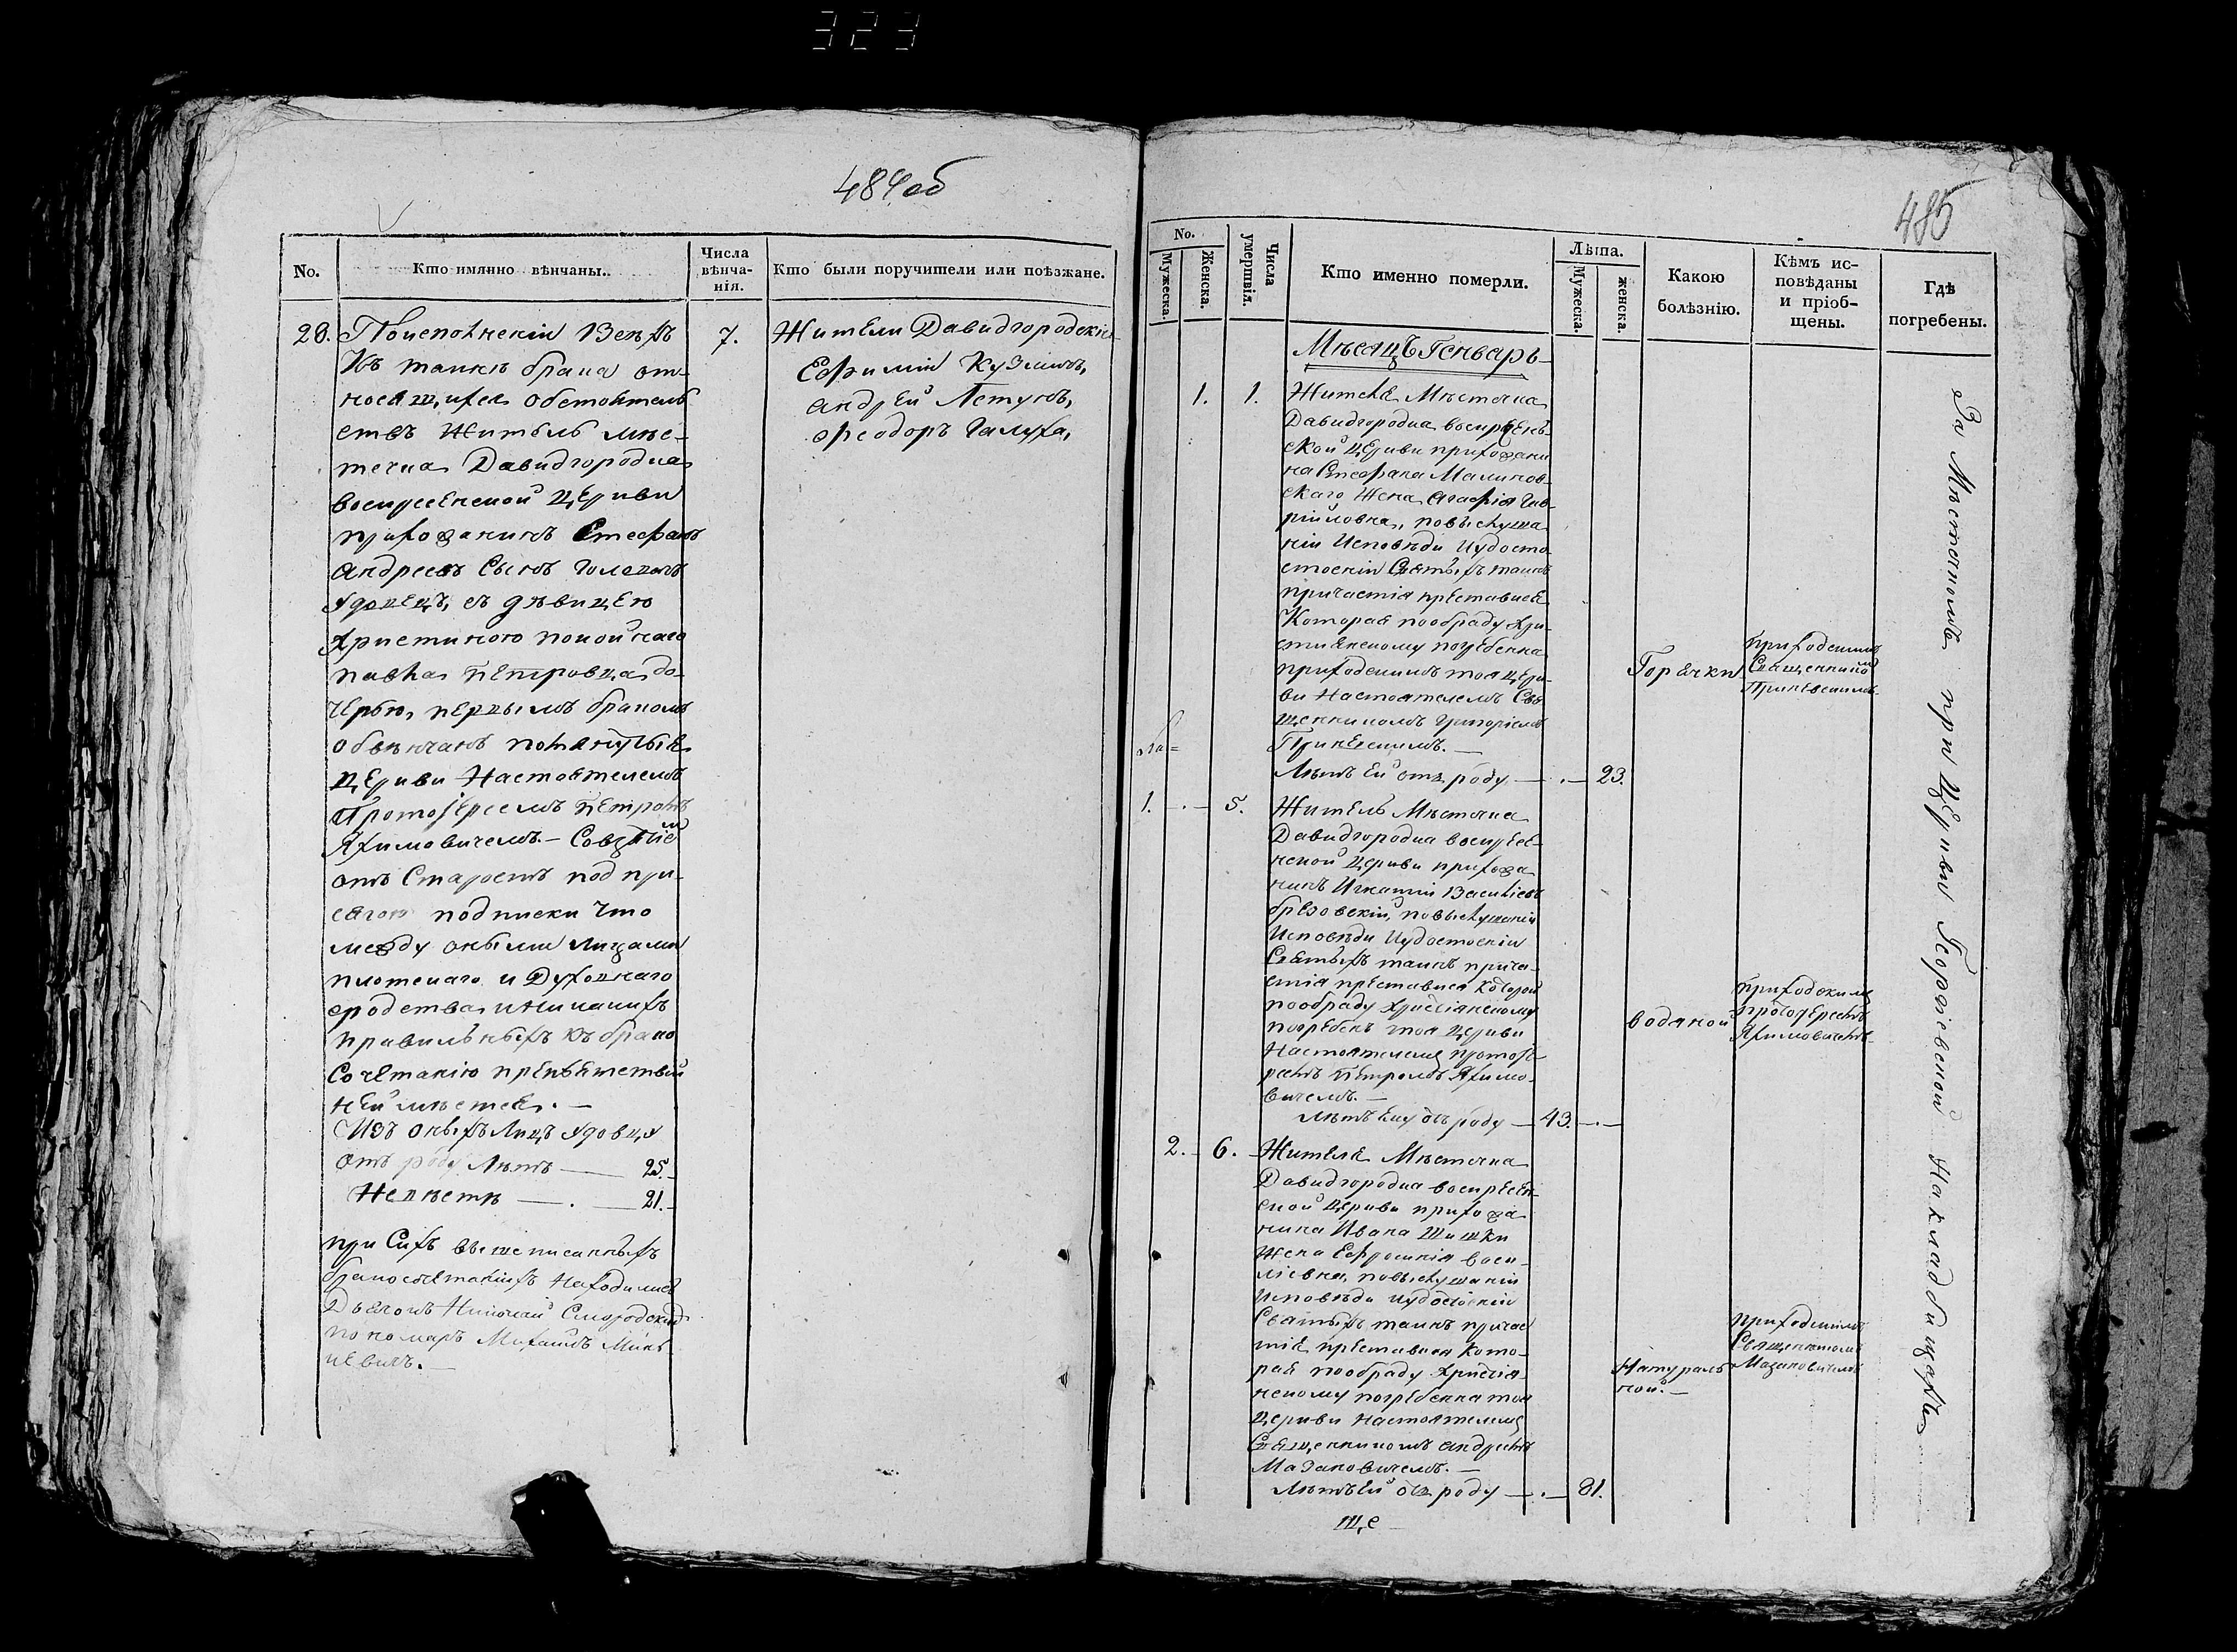 323
484 об
No.
Кто имянно вѣнчаны.
Числа
вѣнча-
нія.
Кто были поручители или поѣзжане.
28.
По исполненіи всѣхъ
къ таинѣ брака от-
носящихся обстоятель
ствъ житель мѣс-
течка Давидгородка
воскресенской церкви
прихожанинъ Стефанъ
Андреевъ сынъ
вдовецъ, съ дѣвицею
Христиною покойнаго
Павла Петровца до-
черью, первымъ бракомъ
обвѣнчанъ
церкви Настоятелемъ
Протоіереемъ Петромъ
Яхимовичемъ. —
отъ Старостъ под при-
сягою подписки что
между оными лицами
плотскаго и Духовнаго
сродства и никакихъ
правильныхъ къ брако
сочетанію препятствій
неимѣется. —
Изъ оныхъ лицъ вдовцу
отъ роду лѣтъ — 25.
Невѣстѣ — . — 21.
при сихъ вышеписанныхъ
бракосочетаніяхъ находились
Дьячокъ Николай Смородскій
пономаръ Михаилъ Минь
кевичъ. —
7.
Жители Давидгородскіе
Ефимій Кузмичъ,
Андрей Летунъ,
Феодоръ Галуха,
485
No.
Мужеска.
Женска.
Числа
умертвія.
Кто именно померли.
Лѣта.
Мужеска.
женска.
Какою
болѣзнію.
Кѣмъ ис-
повѣданы
и пріоб-
щены.
Гдѣ
погребены.
Мѣсяцъ Генварь
1. 1. Жителя Мѣстечка
Давидгородка воскресен-
ской церкви прихожани
на Стефана Малинов-
скаго жена Агафія Гав-
рійловна, по выслуша
ніи исповѣди и удосто
стоеніи Святыхъ таинъ
причастія преставися
Которая по обряду Хри-
стиянскому погребенна
приходскимъ тоя церк-
ви настоятелемъ Свя
щенникомъ Григоріемъ
Прикевскимъ. —
Лѣтъ ей отъ роду — . — 23.
Горячки
приходскимъ
Священникомъ
Прикевскимъ
1. — . — 5. Житель Мѣстечка
Давидгородка воскресе-
нской церкви прихожа
нинъ Игнатій Васильевъ
Брезовскій, по выслушаніи
исповѣди и удостоеніи
Святыхъ таинъ прича-
стія преставися который
по обряду Христіянскому
погребенъ тоя церкви
Настоятелемъ протоіе-
реемъ Петромъ Яхимо-
вичемъ. —
лѣтъ ему отъ роду — 43. — . —
водяной
приходскимъ
протоіереемъ
Яхимовичемъ
2. — 6. — Жителя Мѣстечка
Давидгородка воскресен-
ской церкви прихожа
нина Ивана Шишки
жена Ефросинія Васи-
ліевна, по выслушаніи
исповѣди и удостоеніи
Святыхъ таинъ причас
тія преставися кото-
рая по обряду Христія-
нскому погребенна тоя
церкви настоятелемъ
Священникомъ Андреемъ
Мазановичемъ. —
Лѣтъ ей отъ роду — . — 81.
Натураль
ной. —
приходскимъ
Священникомъ
Мазановичемъ
За Мѣстечкомъ при Церкви Георгіевской На кладбищахъ